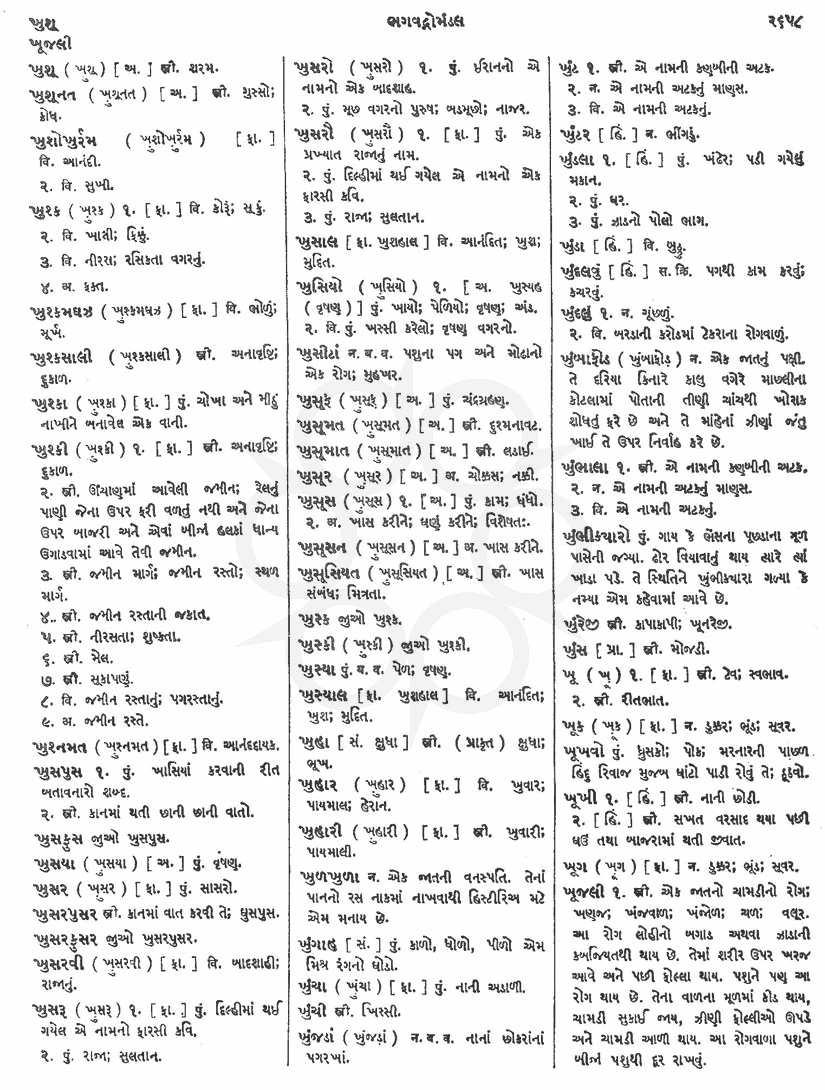 ખુશૂ
ખૂજલી
ભગવદ્ગોમંડલ
૨૬૫૮
ખુશૂ ( ખુશૂ ) [ અ. ] સ્ત્રી. શરમ.
ખુશૂનત ( ખુશૂનત ) [ અ. ] સ્ત્રી. ગુસ્સો;
ક્રોધ.
ખુશોખુર્રમ ( ખુશોખુર્રમ ) [ ફા. ]
વિ. આનંદી.
૨. વિ. સુખી.
ખુશ્ક ( ખુશ્ક ) ૧. [ ફા. ] વિ. કોરૂં; સૂકું.
૨. વિ. ખાલી; ફિક્કું.
૩. વિ. નીરસ; રસિકતા વગરનું.
૪. અ. ફક્ત.
ખુશ્કમઘઝ ( ખુશ્કમઘઝ ) [ ફા. ] વિ. ભોળું;
મૂર્ખ.
ખુશ્કસાલી ( ખુશ્કસાલી ) સ્ત્રી. અનાવૃષ્ટિ;
દુકાળ.
ખુશ્કા ( ખુશ્કા ) [ ફા. ] પું. ચોખા અને મીઠું
નાખીને બનાવેલ એક વાની.
ખુશ્કી ( ખુશ્કી ) ૧. [ ફા. ] સ્ત્રી. અનાવૃષ્ટિ;
દુકાળ.
૨. સ્ત્રી. ઊંચાણમાં આવેલી જમીન; રેલનું
પાણી જેના ઉપર ફરી વળતું નથી અને જેના
ઉપર બાજરી અને એવાં બીજાં હલકાં ધાન્ય
ઉગાડવામાં આવે તેવી જમીન.
૩. સ્ત્રી. જમીન માર્ગ; જમીન રસ્તો; સ્થળ
માર્ગ.
૪. સ્ત્રી. જમીન રસ્તાની જકાત.
૫. સ્ત્રી. નીરસતા; શુષ્કતા.
૬. સ્ત્રી. મેલ.
૭. સ્ત્રી. સૂકાપણું.
૮. વિ. જમીન રસ્તાનું; પગરસ્તાનું.
૯. અ. જમીન રસ્તે.
ખુશ્નમત ( ખુશ્નમત ) [ ફા. ] વિ. આનંદદાયક.
ખુસપુસ ૧. પું. ખાસિયાં કરવાની રીત
બતાવનારો શબ્દ.
૨. સ્ત્રી. કાનમાં થતી છાની છાની વાતો.
ખુસફુસ જુઓ ખુસપુસ.
ખુસયા ( ખુસયા ) [ અ. ] પું. વૃષણ.
ખુસર ( ખુસર ) [ ફા. ] પું. સાસરો.
ખુસરપુસર સ્ત્રી. કાનમાં વાત કરવી તે; ઘુસપુસ.
ખુસરફુસર જુઓ ખુસરપુસર.
ખુસરવી ( ખુસરવી ) [ ફા. ] વિ. બાદશાહી;
રાજાનું.
ખુસરૂ ( ખુસરૂ ) ૧. [ ફા. ] પું. દિલ્હીમાં થઈ
ગયેલ એ નામનો ફારસી કવિ.
૨. પું. રાજા; સુલતાન.
ખુસરો ( ખુસરો ) ૧. પું. ઈરાનનો એ
નામનો એક બાદશાહ.
૨. પું. મૂછ વગરનો પુરુષ; બડમૂછો; નાજર.
ખુસરૌ ( ખુસરૌ ) ૧. [ ફા. ] પું. એક
પ્રખ્યાત રાજાનું નામ.
૨. પું. દિલ્હીમાં થઈ ગયેલ એ નામનો એક
ફારસી કવિ.
૩. પું. રાજા; સુલતાન.
ખુસાલ [ ફા. ખુશહાલ ] વિ. આનંદિત; ખુશ;
મુદિત.
ખુસિયો ( ખુસિયો ) ૧. [ અ. ખુસ્યહ
( વૃષણ ) ] પું. ખાયો; પેળિયો; વૃષણ; અંડ.
૨. વિ. પું. ખસ્સી કરેલો; વૃષણ વગરનો.
ખુસીટાં ન. બ. વ. પશુના પગ અને મોઢાનો
એક રોગ; મુહખર.
ખુસૂફ ( ખુસૂફ ) [ અ. ] પું. ચંદ્રગ્રહણ.
ખુસૂમત ( ખુસૂમત ) [ અ. ] સ્ત્રી. દુશ્મનાવટ.
ખુસૂમાત ( ખુસૂમાત ) [ અ. ] સ્ત્રી. લડાઈ.
ખુસૂર ( ખુસૂર ) [ અ. ] અ. ચોક્કસ; નક્કી.
ખુસૂસ ( ખુસૂસ ) ૧. [ અ. ] પું. કામ; ધંધો.
૨. અ. ખાસ કરીને; ઘણું કરીને; વિશેષતઃ.
ખુસૂસન ( ખુસૂસન ) [ અ. ] અ. ખાસ કરીને.
ખુસૂસિયત ( ખુસૂસિયત ) [ અ. ] સ્ત્રી. ખાસ
સંબંધ; મિત્રતા.
ખુસ્ક જુઓ ખુશ્ક.
ખુસ્કી ( ખુસ્કી ) જુઓ ખુશ્કી.
ખુસ્યા પું. બ. વ. પેળ; વૃષણ.
ખુસ્યાલ [ ફા. ખુશહાલ ] વિ. આનંદિત;
ખુશ; મુદિત.
ખુહા [ સં. ક્ષુધા ] સ્ત્રી. ( પ્રાકૃત ) ક્ષુધા;
ભૂખ.
ખુહાર ( ખુહાર ) [ ફા. ] વિ. ખુવાર;
પાયમાલ; હેરાન.
ખુહારી ( ખુહારી ) [ ફા. ] સ્ત્રી. ખુવારી;
પાયમાલી.
ખુળખુળા ન. એક જાતની વનસ્પતિ. તેનાં
પાનનો રસ નાકમાં નાખવાથી હિસ્ટીરિઅ મટે
એમ મનાય છે.
ખુંગાહ [ સં. ] પું. કાળો, ધોળો, પીળો એમ
મિશ્ર રંગનો ઘોડો.
ખુંચા ( ખુંચા ) [ ફા. ] પું. નાની અડાળી.
ખુંચી સ્ત્રી. ખિસ્સી.
ખુંજડાં ( ખુંજડાં ) ન. બ. વ. નાનાં છોકરાંનાં
પગરખાં.
ખુંટ ૧. સ્ત્રી. એ નામની કણબીની અટક.
૨. ન. એ નામની અટકનું માણસ.
૩. વિ. એ નામની અટકનું.
ખુંટર [ હિં. ] ન. ભીંગડું.
ખુંડલા ૧. [ હિં. ] પું. ખંડેર; પડી ગયેલું
મકાન.
૨. પું. ઘર.
૩. પું. ઝાડનો પોલો ભાગ.
ખુંડા [ હિં. ] વિ. બુઠ્ઠું.
ખુંદલવું [ હિં. ] સ. ક્રિ. પગથી કામ કરવું;
કચરવું.
ખુંદલું ૧. ન. ગૂંછળું.
૨. વિ. બરડાની કરોડમાં ટેકરાના રોગવાળું.
ખુંબાફોડ ( ખુંબાફોડ ) ન. એક જાતનું પક્ષી.
તે દરિયા કિનારે કાલુ વગેરે માછલીના
કોટલામાં પોતાની તીણી ચાંચથી ખોરાક
શોધતું ફરે છે અને તે માંહેનાં ઝીણાં જંતુ
ખાઈ તે ઉપર નિર્વાહ કરે છે.
ખુંભાલા ૧. સ્ત્રી. એ નામની કણબીની અટક.
૨. ન. એ નામની અટકનું માણસ.
૩. વિ. એ નામની અટકનું.
ખુંભીક્યારો પું. ગાય કે ભેંસના પુછડાના મૂળ
પાસેની જગ્યા. ઢોર વિયાવાનું થાય ત્યારે ત્યાં
ખાડા પડે. તે સ્થિતિને ખુંભીક્યારા ગળ્યા કે
નમ્યા એમ કહેવામાં આવે છે.
ખુંરેજી સ્ત્રી. કાપાકાપી; ખૂનરેજી.
ખુંસ [ પ્રા. ] સ્ત્રી. મોજડી.
ખૂ ( ખૂ ) ૧. [ ફા. ] સ્ત્રી. ટેવ; સ્વભાવ.
૨. સ્ત્રી. રીતભાત.
ખૂક ( ખૂક ) [ ફા. ] ન. ડુક્કર; ભૂંડ; સૂવર.
ખૂખવો પું. ઠુસકો; પોક; મરનારની પાછળ
હિંદુ રિવાજ મુજબ ઘાંટો પાડી રોવું તે; ઠૂઠવો.
ખૂખી ૧. [ હિં. ] સ્ત્રી. નાની છોડી.
૨. [ હિં. ] સ્ત્રી. સખત વરસાદ થયા પછી
ઘઉં તથા બાજરામાં થતી જીવાત.
ખૂગ ( ખૂગ ) [ ફા. ] ન. ડુક્કર; ભૂંડ; સૂવર.
ખૂજલી ૧. સ્ત્રી. એક જાતનો ચામડીનો રોગ;
ખણુજ; ખંજવાળ; ખંજોળ; ચળ; વલૂર.
આ રોગ લોહીનો બગાડ અથવા ઝાડાની
કબજિયતથી થાય છે. તેમાં શરીર ઉપર ખરજ
આવે અને પછી ફોલ્લા થાય. પશુને પણ આ
રોગ થાય છે. તેના વાળના મૂળમાં કીડ થાય,
ચામડી સુકાઈ જાય, ઝીણી ફોલ્લીઓ ઊપડે
અને ચામડી આળી થાય. આ રોગવાળા પશુને
બીજાં પશુથી દૂર રાખવું.